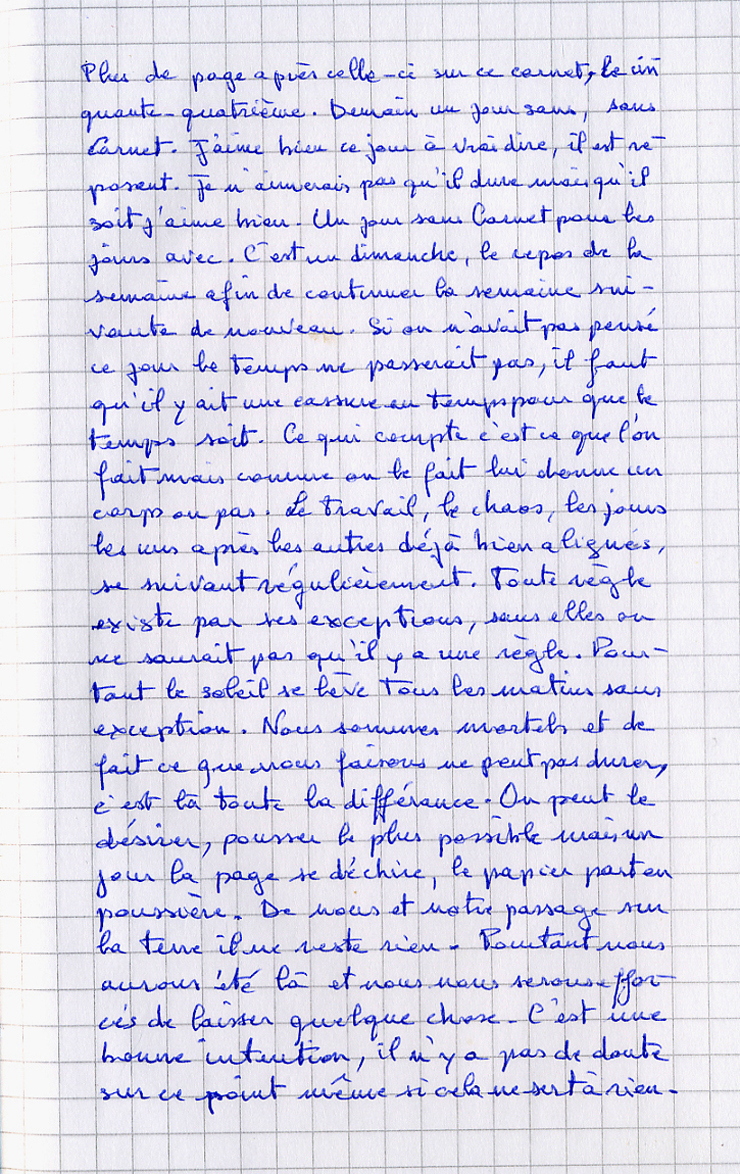 Plus de page après celle-ci sur ce carnet, le cin
quante-quatrième. Demain un jour sans, sans
Carnet. J'aime bien ce jour à vrai dire, il est re-
posant. Je n'aimerais pas qu'il dure mais qu'il
soit j'aime bien. Un jour sans Carnet pour les
jours avec. C'est un dimanche, le repos de la
semaine afin de continuer la semaine sui-
vante de nouveau. Si on n'avait pas pensé
ce jour le temps ne passerait pas, il faut
qu'il y ait une cassure en temps pour que le
temps soit. Ce qui compte c'est ce que l'on
fait mais comme on le fait lui donne un
corps ou pas. Le travail, le chaos, les jours
les uns après les autres déjà bien alignés,
se suivant régulièrement. Toute règle
existe par ses exceptions, sans elles on
ne saurait pas qu'il y a une règle. Pour-
tant le soleil se lève tous les matins sans
exception. Nous sommes mortels et de
fait ce que nous faisons ne peut pas durer,
c'est là toute la différance. On peut le
désirer, pousser le plus possible mais un
jour la page se déchire, le papier part en
poussière. De nous et notre passage sur
la terre il ne reste rien. Pourtant nous
aurons été là et nous nous serons effor-
cés de laisser quelque chose. C'est une
bonne intention, il n'y a pas de doute
sur ce point même si cela ne sert à rien.